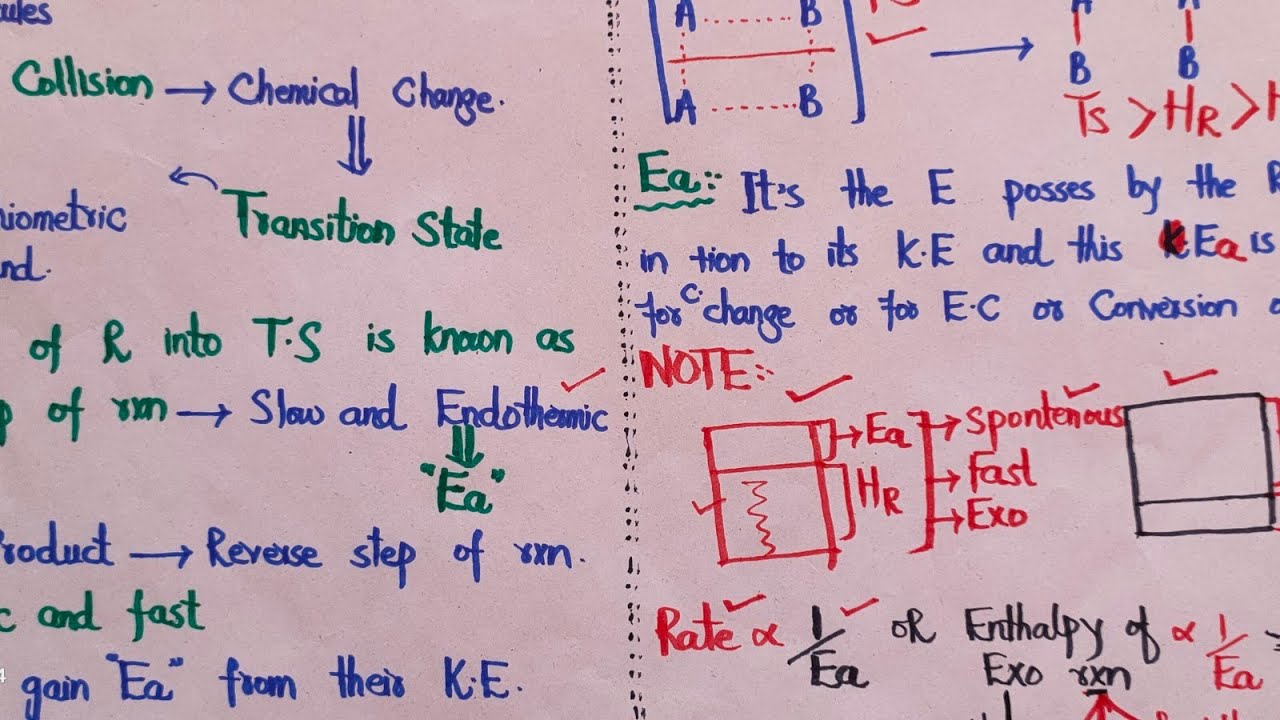 ules
Collision → Chemical Change.
niometric
nd.
Transition State
of R into T.S is known as
p of rxn → Slow and Endothermic
"Ea"
Product → Reverse step of rxn.
c and fast
gain "Ea" from their K.E.
A ........ B
A ........ B
A
B B
Ts > HR > H
Ea:- It's the E posses by the R
in tion to its K.E and this Ea is
for c. change or for E.C or Conversion o
NOTE:-
Ea
HR
→ Spontenous
→ Fast
→ Exo
Rate ∝ 1/Ea OR Enthalpy of ∝ 1/Ea
Exo rxn